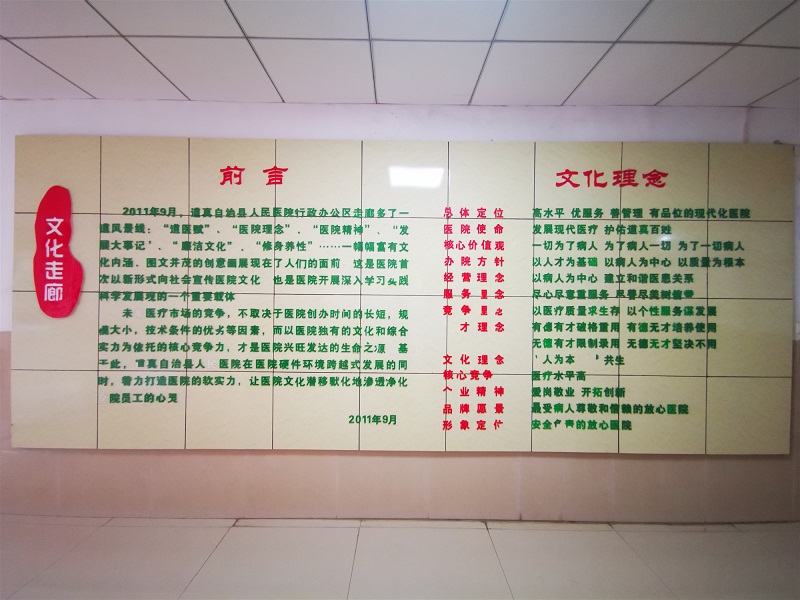 文化走廊
前言
2011年9月，道真自治县人民医院行政办公区走廊多了一
道风景线：“道医赋”、“医院理念”、“医院精神”、“发
展大事记”、“廉洁文化”、“修身养性”……一幅幅富有文
化内涵、图文并茂的创意画展现在了人们的面前 这是医院首
次以新形式向社会宣传医院文化 也是医院开展深入学习实践
科学发展观的一个重要载体
未 医疗市场的竞争，不取决于医院创办时间的长短，规
模大小，技术条件的优劣等因素，而以医院独有的文化和综合
实力为依托的核心竞争力，才是医院兴旺发达的生命之源 基
于此，道真自治县人 医院在医院硬件环境跨越式发展的同
时，着力打造医院的软实力，让医院文化潜移默化地渗透净化
院员工的心灵
2011年9月
文化理念
总体定位 高水平 优服务 善管理 有品位的现代化医院
医院使命 发展现代医疗 护佑道真百姓
核心价值观 一切为了病人 为了病人一切 为了一切病人
办院方针 以人才为基础 以病人为中心 以质量为根本
经营理念 以病人为中心 建立和谐医患关系
服务理念 尽心尽意重服务 尽善尽美树信誉
竞争理念 以医疗质量求生存 以个性服务谋发展
才理念 有德有才破格重用 有德无才培养使用
无德有才限制录用 无德无才坚决不用
文化理念 人为本 共生
核心竞争 医疗水平高
企业精神 爱岗敬业 开拓创新
品牌愿景 最受病人尊敬和信赖的放心医院
形象定位 安全负责的放心医院